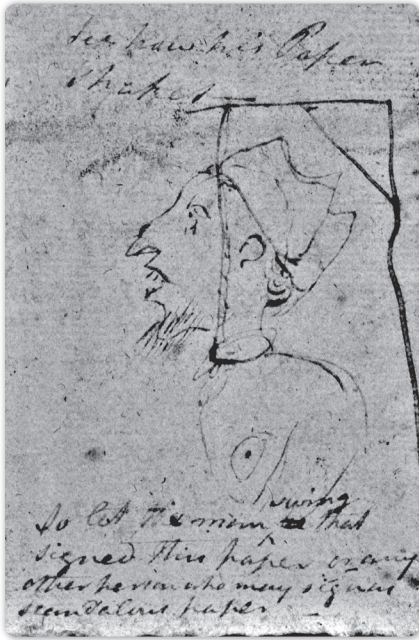 See how his Paper
Shakes
swing
So let the man that
signed this paper or any
other person who may sign as
scandalous paper